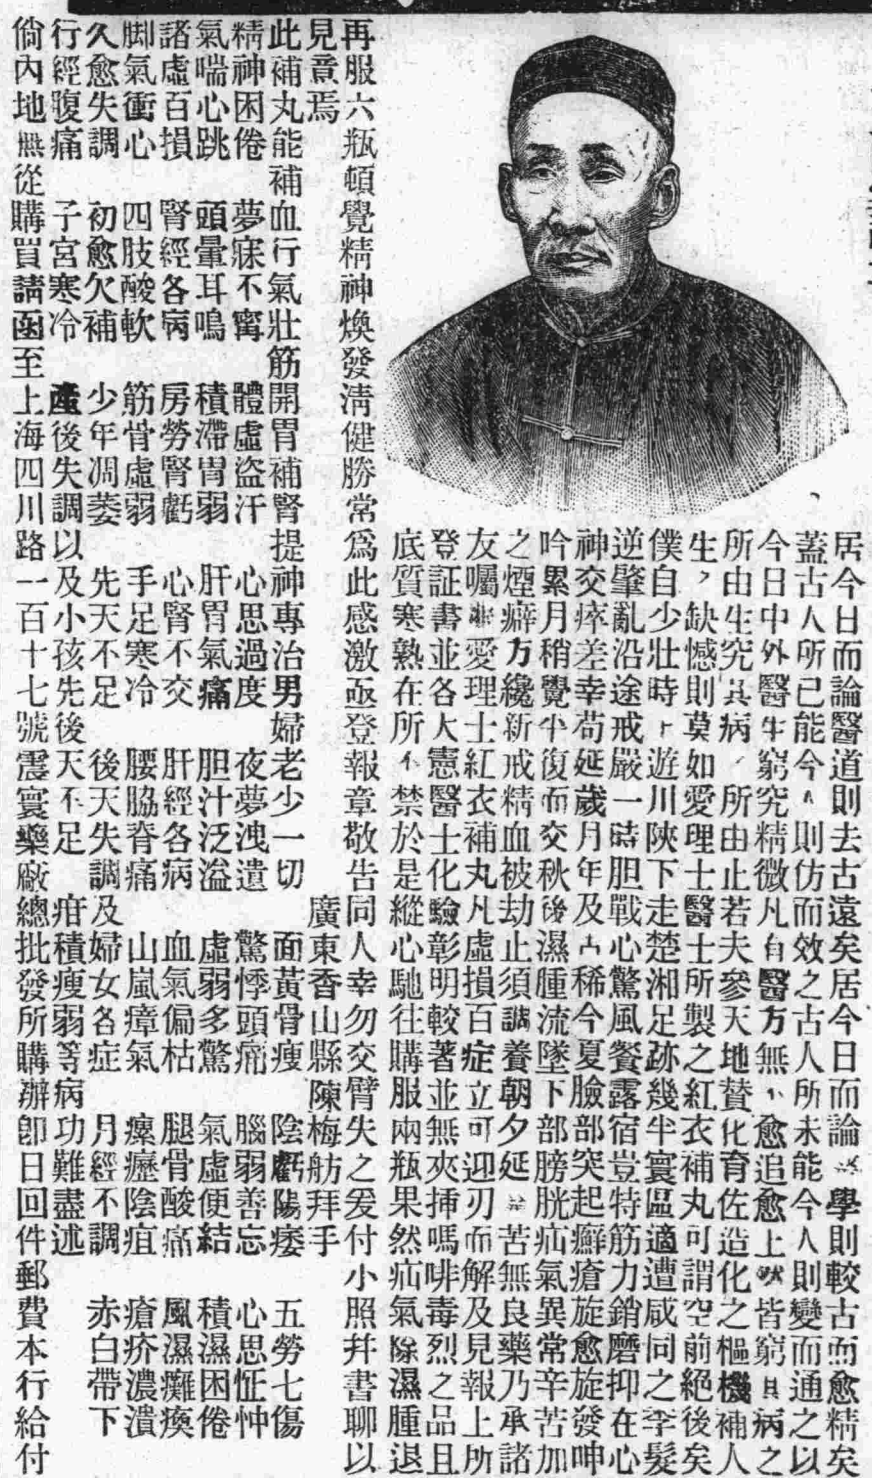 居今日而論醫道則去古遠矣居今日而論學則較古而愈精矣
蓋古人所已能今人則仿而效之古人所未能今人則變而通之以
今日中外醫生窮究精微凡自醫方無不愈追愈上然皆窮其病之
所由生究其病之所由止若夫參天地贊化育佐造化之樞機補人
生，缺憾則莫如愛理士醫士所製之紅衣補丸可謂空前絕後矣
僕自少壯時上遊川陝下走楚湘足跡幾半寰區適遭咸同之季髮
逆肇亂沿途戒嚴一時胆戰心驚風餐露宿豈特筋力銷磨抑在心
神交瘁差幸苟延歲月年及古稀今夏臉部突起癬瘡旋愈旋發呻
吟累月稍覺半復而交秋後濕腫流墜下部膀胱疝氣異常辛苦加
之煙癖方纔新戒精血被劫止須調養朝夕延 苦無良藥乃承諸
友囑 愛理士紅衣補丸凡虛損百症立可迎刃而解及見報上所
登証書並各大憲醫士化驗彰明較著並無夾挿嗎啡毒烈之品且
底質寒熟在所不禁於是縱心馳往購服兩瓶果然疝氣除濕腫退
再服六瓶頓覺精神煥發淸健勝常爲此感激亟登報章敬告同人幸勿交臂失之爰付小照幷書聊以
見意焉 廣東香山縣陳梅舫拜手
此補丸能補血行氣壯筋開胃補腎提神專治男婦老少一切 面黃骨瘦 陰虧陽痿 五勞七傷
精神困倦 夢寐不寗 體虛盜汗 心思過度 夜夢洩遺 驚悸頭痛 腦弱善忘 心思怔忡
氣喘心跳 頭暈耳鳴 積滯胃弱 肝胃氣痛 胆汁泛溢 虛弱多驚 氣虛便結 積濕困倦
諸虛百損 腎經各病 房勞腎虧 心腎不交 肝經各病 血氣偏枯 腿骨酸痛 風濕癱瘓
脚氣衝心 四肢酸軟 筋骨虛弱 手足寒冷 腰脇脊痛 山嵐瘴氣 瘰癧陰疽 瘡疥濃潰
久愈失調 初愈欠補 少年凋萎 先天不足 後天失調及婦女各症 月經不調 赤白帶下
行經腹痛 子宮寒冷 產後失調以及小孩先後天不足 疳積瘦弱等病功難盡述
倘內地無從購買請函至上海四川路一百十七號震寰藥廠總批發所購辦卽日回件郵費本行給付